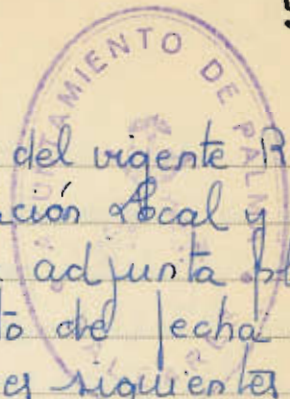 AYUNTAMIENTO DE PALMA
del vigente R
ación Local y
adjunta pl
to de fecha
es siguientes